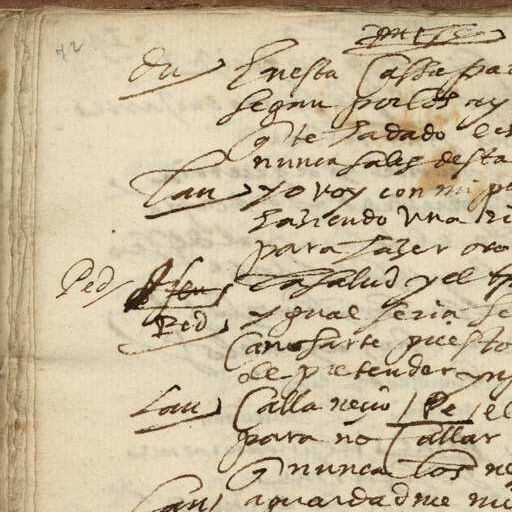 42
du en esta cassa par
segun por los ay
q te ha dado
nunca sales desta
Lau yo voy con mi pe
haziendo una
para hazer oro
Ped la salud y el
Ped ygual seria se
cansarte puesto
de pretender yn
Lau Calla necio / Pe / el
para no callar
q nunca los ne
Lau aguardadme